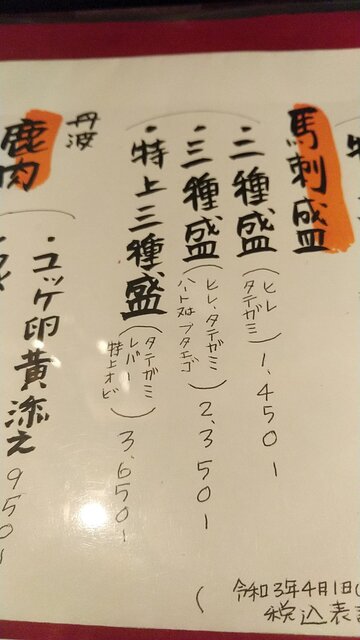 馬刺盛
・二種盛
(ヒレ
タテガミ)
1,450ー
・三種盛
(ヒレ、タテガミ
ハート又はフタエゴ)
2,350ー
・特上三種盛
(タテガミ
レバー
特上オビ)
3,650ー
丹波
鹿肉
・ユッケ卵黄添え
950ー
令和3年4月1日
税込表